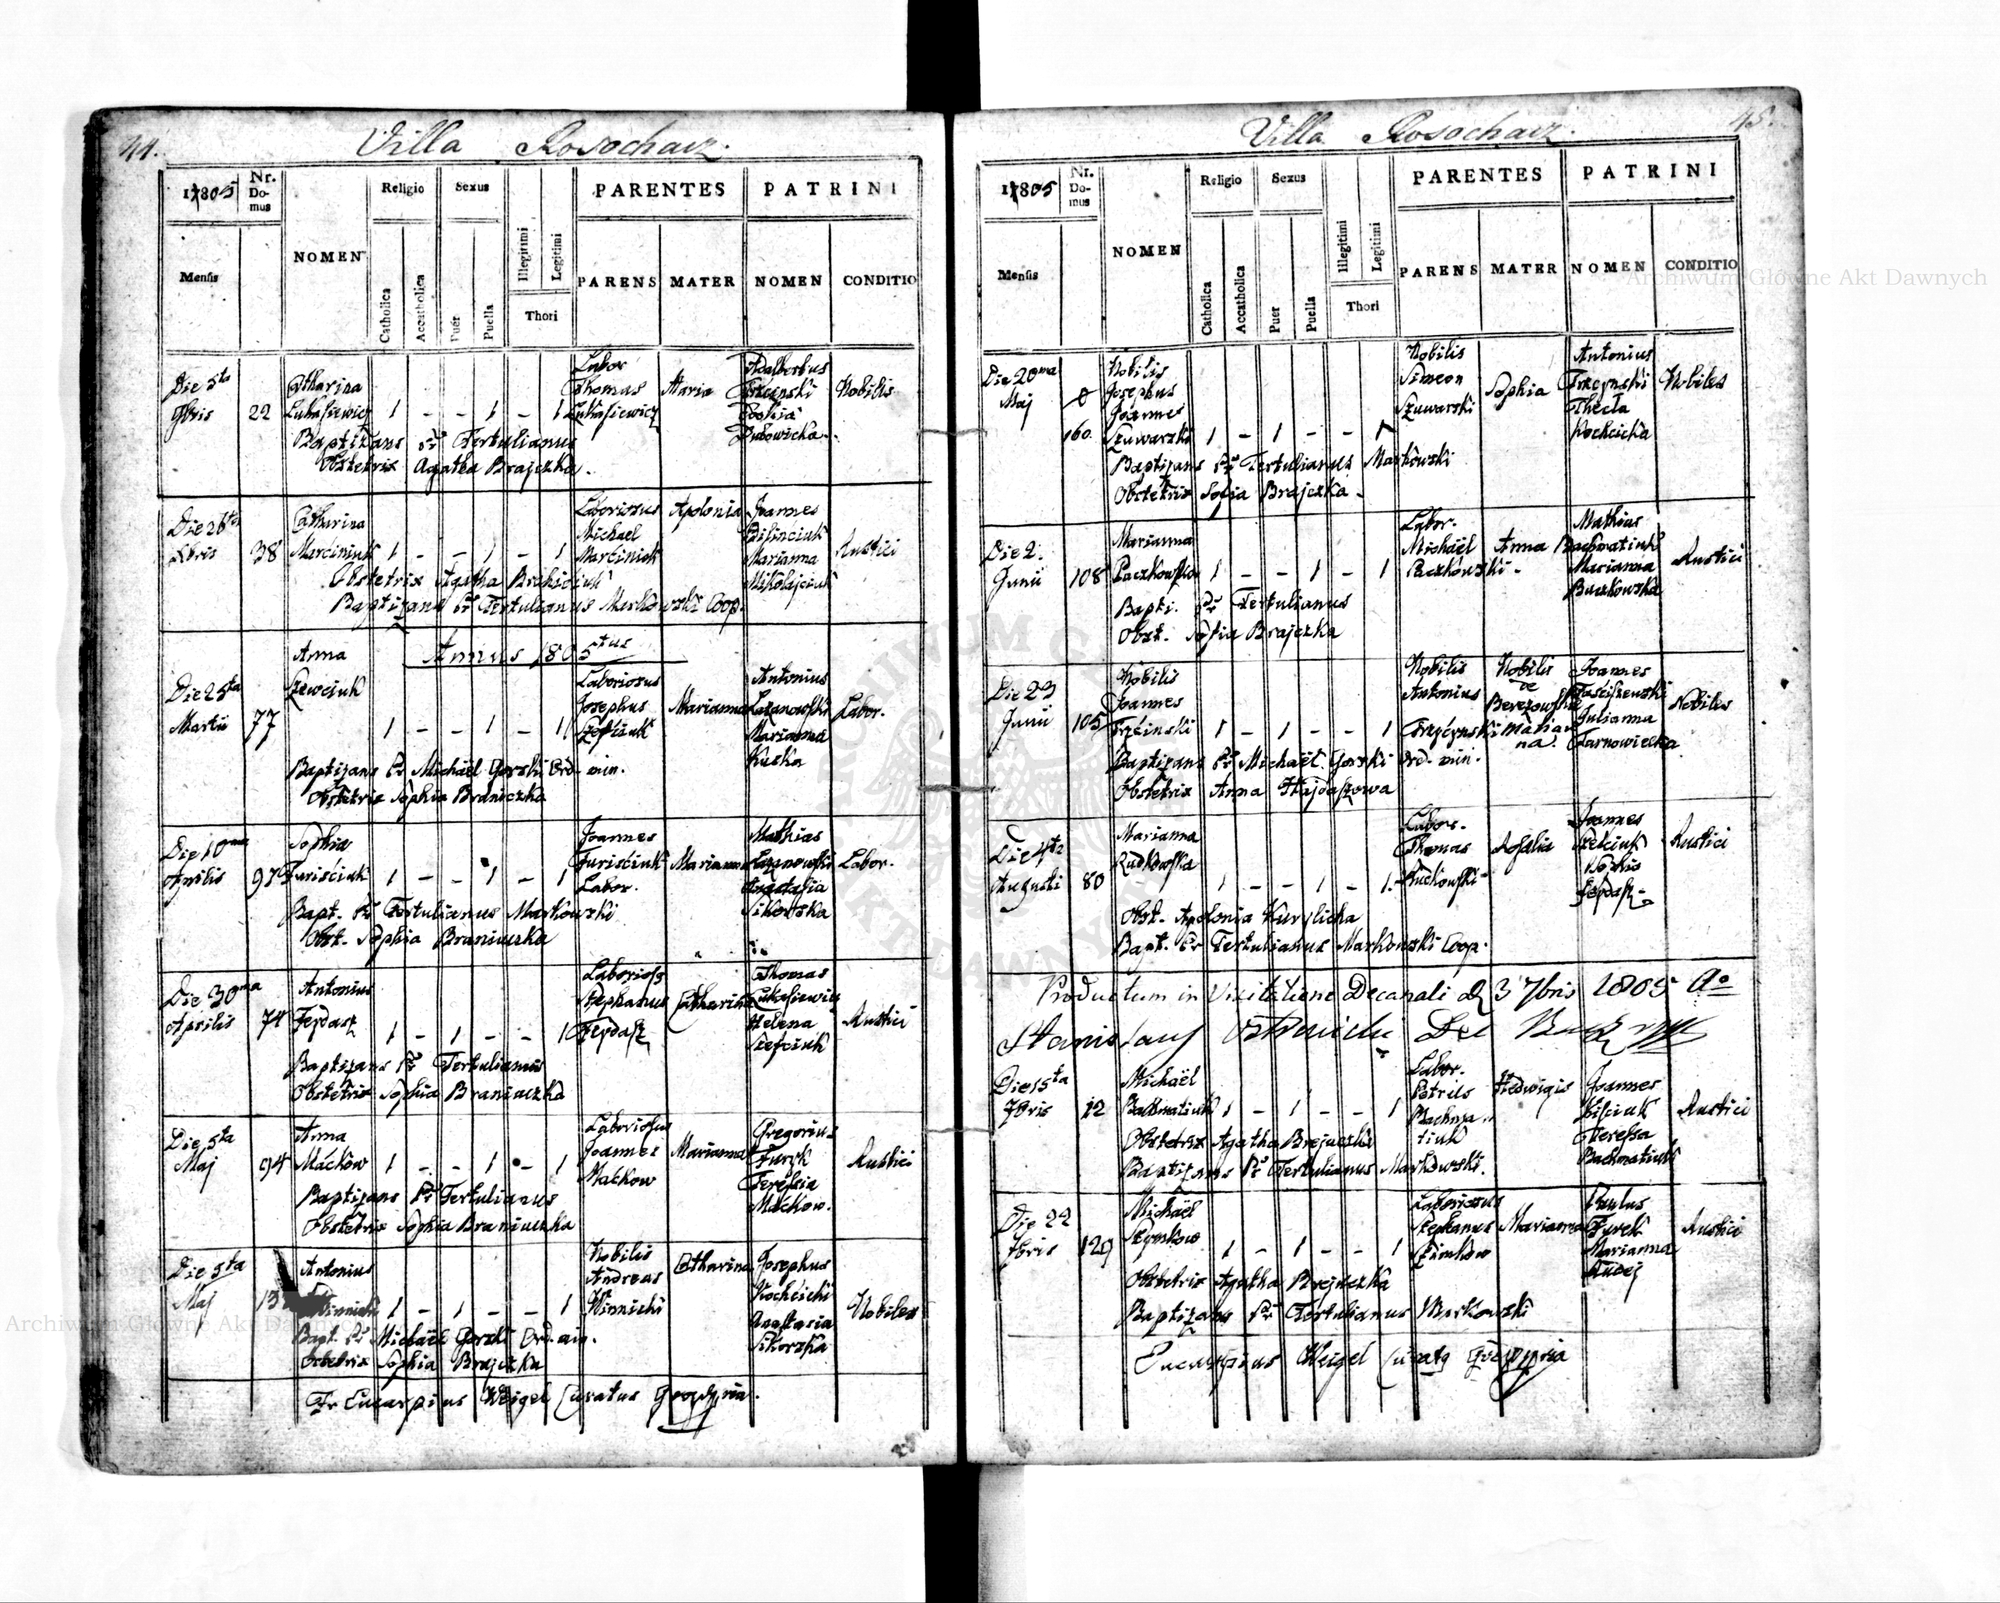 44.
Villa Rosochacz.
1805
Nr. Domus
NOMEN
Religio
Sexus
PARENTES
PATRINI
Mensis
Catholica
Accatholica
Puer
Puella
Illegitimi
Legitimi
Thori
PARENS
MATER
NOMEN
CONDITIO
Die 5ta
9bris
22
Catharina
Lukasiewicz
1 - - 1 - 1
Labor
Thomas
Lukasiewicz
Maria
Adalbertus
Trzcinski
Sophia
Dubowicka
Nobilis
Baptizans Pr Tertulianus
Obstetrix Agatha Brajczka.
Die 26ta
Xbris
38
Catharina
Marciniuk
1 - - 1 - 1
Laboriosus
Michael
Marciniuk
Apolonia
Joannes
Marianna
Mikolajciuk
Rustici
Obstetrix Agatha
Baptizans Pr Tertulianus Markowski Coop.
Annus 1805tus
Die 25ta
Martii
77
Anna
Szewciuk
1 - - 1 - 1
Laboriosus
Josephus
Szefciuk
Marianna
Antonius
Lazanowski
Marianna
Kuska
Labor.
Baptizans Pr Michaël Gorski Ord. min.
Obstetrix Sophia Braniczka
Die 10ma
Aprilis
97
Sophia
Jurisciuk
1 - - 1 - 1
Joannes
Jurisciuk
Labor.
Marianna
Mathias
Lazanowski
Anastasia
Sikorska
Labor.
Bapt. Pr Tertulianus Markowski
Obst. Sophia Braniuczka
Die 30ma
Aprilis
74
Antonius
Fejdasz
1 - 1 - - 1
Laboriosg
Stephanus
Fejdasz
Catharina
Thomas
Lukasiewicz
Helena
Szefciuk
Rustici
Baptizans Pr Tertulianus
Obstetrix Sophia Braniuczka
Die 5ta
Maj
94
Anna
Mackow
1 - - 1 - 1
Laboriosus
Joannes
Mackow
Marianna
Gregorius
Furyk
Teressia
Mackow.
Rustici
Baptizans Pr Tertulianus
Obstetrix Sophia Braniuczka
Die 5ta
Maj
Antonius
Winnicki
1 - 1 - - 1
Nobilis
Andreas
Winnicki
Catharina
Josephus
Kochcicki
Anastasia
Sikorska
Nobiles
Bapt. Pr Michaël Gorski Ord. min.
Obstetrix Sophia Brajczka
Fr Eucarpius Weigel Curatus
45.
Villa Rosochacz.
1805
Nr. Domus
NOMEN
Religio
Sexus
PARENTES
PATRINI
Mensis
Catholica
Accatholica
Puer
Puella
Illegitimi
Legitimi
Thori
PARENS
MATER
NOMEN
CONDITIO
Die 20ma
Maj
160.
Nobilis
Josephus
Joannes
Szuwarski
1 - 1 - - 1
Nobilis
Simeon
Szuwarski
Sophia
Antonius
Trzcynski
Thecla
Kochcicka
Nobiles
Baptizans Pr Tertulianus Markowski
Obstetrix Sofia Brajczka.
Die 2.
Junii
108
Marianna
Paczkowska
1 - - 1 - 1
Labor.
Michaël
Paczkowski.
Anna
Mathias
Bachmatiuk
Marianna
Buczkowska
Rustici
Bapti. Pr Tertulianus
Obst. Sofia Brajczka
Die 23
Junii
105
Nobilis
Joannes
Trzcinski
1 - 1 - - 1
Nobilis
Antonius
Trzycynski
Nobilis
de
Berezowska
Marianna.
Joannes
Julianna
Tarnowiecka
Nobiles
Baptizans Pr Michaël Gorski Ord. min.
Obstetrix Anna Hajdaszowa
Die 4ta
Augusti
80
Marianna
Rudkowska
1 - - 1 - 1.
Labor.
Thomas
Rosalia
Joannes
Szefciuk
Sophia
Fejdasz
Rustici
Obst. Apolonia Kurylicha
Bapt. Pr Tertulianus Markowski Coop.
Productum in Visitatione Decanali d 3 7bris 1805 Ao
Stanislaus
Die 15ta
7bris
12
Michaël
Bachmatiuk
1 - 1 - - 1
Labor.
Petrus
Bachmatiuk
Hedwigis
Joannes
Teressa
Bachmatiuk
Rustici
Obstetrix Agatha Brejuczka
Baptizans Pr Tertulianus Markowski.
Die 22
7bris
129
Michael
Szymkow
1 - 1 - - 1
Laboriosus
Stephanus
Szimkow
Marianna
Paulus
Furyk
Marianna
Rustici
Obstetrix Agatha Brejuczka
Baptizans Pr Tertulianus Markowski
Eucarpius Weigel Curatg
Archiwum Główne Akt Dawnych
Archiwum Główne Akt Dawnych